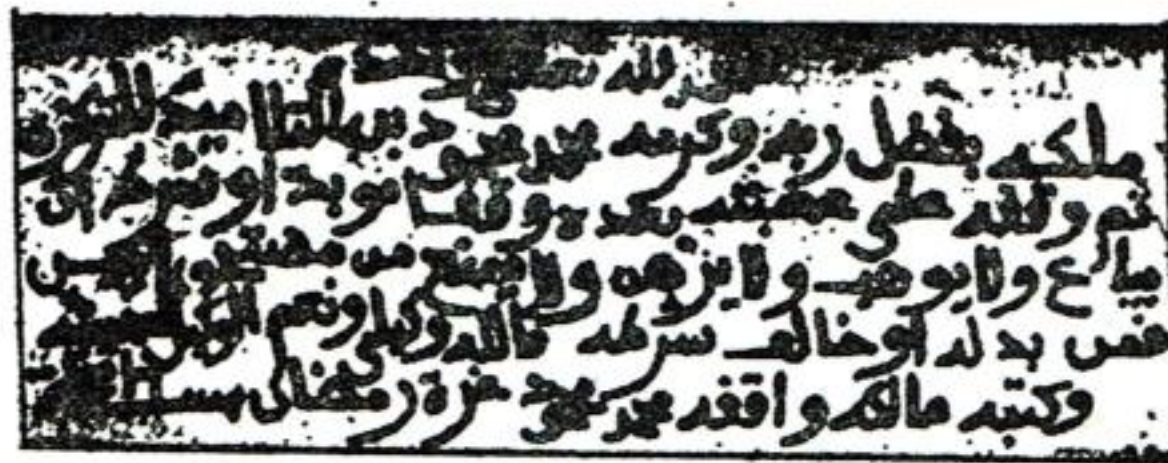 لله
ملكه بفضل ربه وكرمه محمد محمود بن التلاميد التركزي
ثم وقفه على عصبته بعده وقفا مؤبدا وشرطه ان
يباع ولا يوهب ولا يرهن ولا يمنع من
فمن بدله او خالف شرطه فالله وكيلي ونعم الوكيل
وكتبه مالكه واقفه محمد محمود غرة رمضان